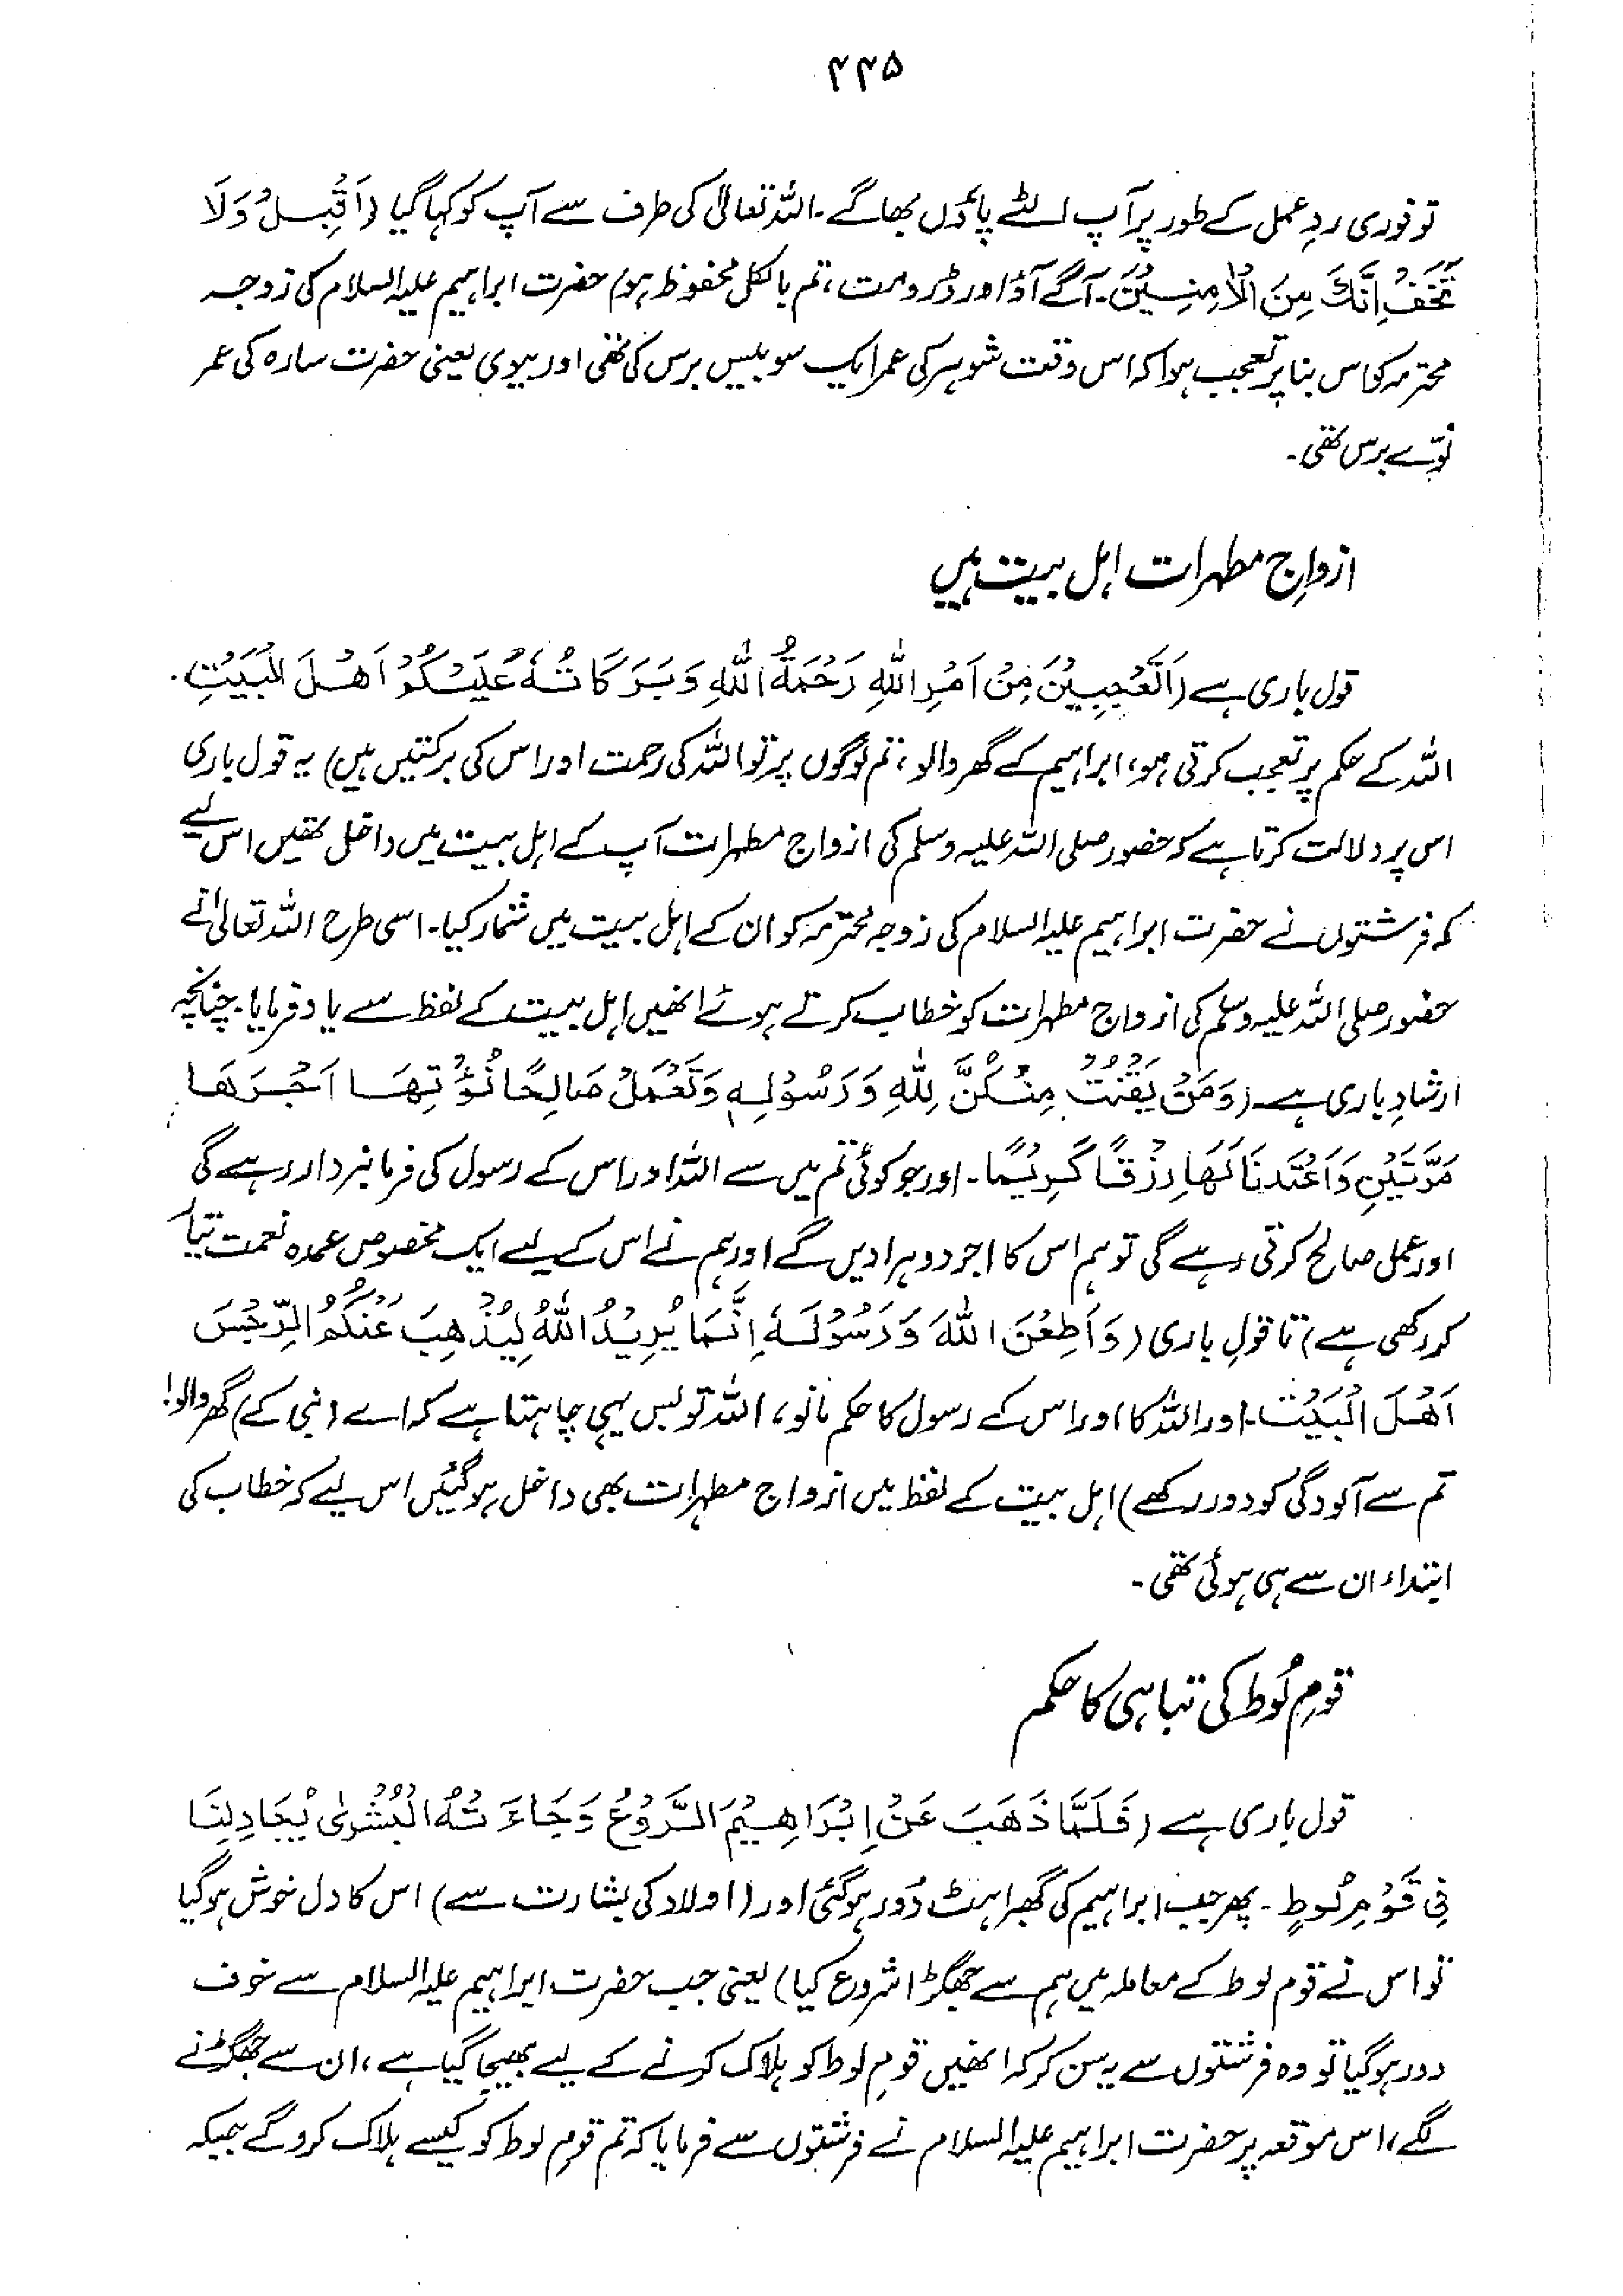 ۴۴۵
تو فوری ردِ عمل کے طور پر آپ الٹے پاؤں بھاگے۔ اللہ تعالیٰ کی طرف سے آپ کو کہا گیا (اَقْبِلْ وَلَا
تَخَفْ اِنَّكَ مِنَ الْاٰمِنِيْنَ۔ آگے آؤ اور ڈرو مت، تم بالکل محفوظ ہو) حضرت ابراہیم علیہ السلام کی زوجہ
محترمہ کو اس بنا پر تعجب ہوا کہ اس وقت شوہر کی عمر ایک سو بیس برس کی تھی اور بیوی یعنی حضرت سارہ کی عمر
نوّے برس تھی۔
ازواجِ مطہرات اہل بیت ہیں
قول باری ہے (اَتَعْجَبِيْنَ مِنْ اَمْرِ اللّٰهِ رَحْمَةُ اللّٰهِ وَبَرَكَاتُهٗ عَلَيْكُمْ اَهْلَ الْبَيْتِ۔
اللہ کے حکم پر تعجب کرتی ہو، ابراہیم کے گھر والو، تم لوگوں پر تو اللہ کی رحمت اور اس کی برکتیں ہیں) یہ قول باری
اس پر دلالت کرتا ہے کہ حضور صلی اللہ علیہ وسلم کی ازواج مطہرات آپ کے اہل بیت میں داخل تھیں اس لیے
کہ فرشتوں نے حضرت ابراہیم علیہ السلام کی زوجہ محترمہ کو ان کے اہل بیت میں شمار کیا۔ اسی طرح اللہ تعالیٰ نے
حضور صلی اللہ علیہ وسلم کی ازواج مطہرات کو خطاب کرتے ہوئے انھیں اہل بیت کے لفظ سے یاد فرمایا۔ چنانچہ
ارشادِ باری ہے (وَمَنْ يَقْنُتْ مِنْكُنَّ لِلّٰهِ وَرَسُوْلِهٖ وَتَعْمَلْ صَالِحًا نُؤْتِهَا اَجْرَهَا
مَرَّتَيْنِ وَاَعْتَدْنَا لَهَا رِزْقًا كَرِيْمًا۔ اور جو کوئی تم میں سے اللہ اور اس کے رسول کی فرمانبردار رہے گی
اور عمل صالح کرتی رہے گی تو ہم اس کا اجر دوہرا دیں گے اور ہم نے اس کے لیے ایک مخصوص عمدہ نعمت تیار
کر رکھی ہے) تا قولِ باری (وَاَطِعْنَ اللّٰهَ وَرَسُوْلَهٗ اِنَّمَا يُرِيْدُ اللّٰهُ لِيُذْهِبَ عَنْكُمُ الرِّجْسَ
اَهْلَ الْبَيْتِ۔ اور اللہ کا اور اس کے رسول کا حکم مانو، اللہ تو بس یہی چاہتا ہے کہ اے (نبی کے) گھر والو!
تم سے آلودگی کو دور رکھے) اہل بیت کے لفظ میں ازواج مطہرات بھی داخل ہوگئیں اس لیے کہ خطاب کی
ابتداء ان سے ہی ہوئی تھی۔
قومِ لُوط کی تباہی کا حکم
قول باری ہے (فَلَمَّا ذَهَبَ عَنْ اِبْرَاهِيْمَ الرَّوْعُ وَجَاءَتْهُ الْبُشْرٰى يُجَادِلُنَا
فِى قَوْمِ لُوطٍ۔ پھر جب ابراہیم کی گھبراہٹ دُور ہوگئی اور (اولاد کی بشارت سے) اس کا دل خوش ہوگیا
تو اس نے قوم لوط کے معاملہ میں ہم سے جھگڑا شروع کیا) یعنی جب حضرت ابراہیم علیہ السلام سے خوف
دور ہوگیا تو وہ فرشتوں سے یہ سن کر کہ انھیں قومِ لوط کو ہلاک کرنے کے لیے بھیجا گیا ہے، ان سے جھگڑنے
لگے، اس موقعہ پر حضرت ابراہیم علیہ السلام نے فرشتوں سے فرمایا کہ تم قومِ لوط کو کیسے ہلاک کرو گے جبکہ